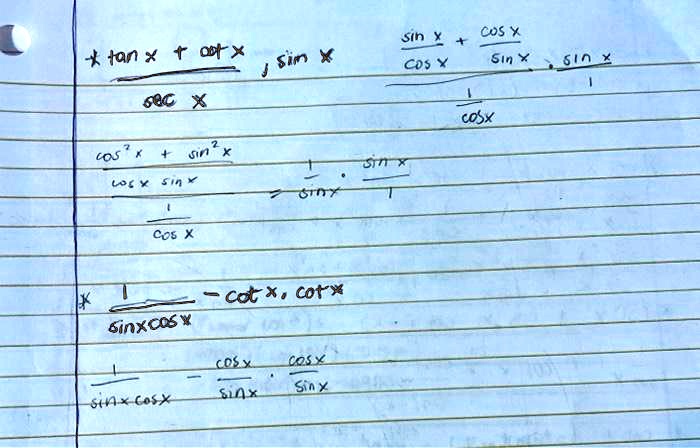 * tan x + cot x / sec x , sin x
sin x / cos x + cos x / sin x / 1 / cos x · sin x / 1
cos² x + sin² x / cos x sin x / 1 / cos x = 1 / sin x · sin x / 1
* 1 / sin x cos x - cot x , cot x
1 / sin x cos x - cos x / sin x · cos x / sin x